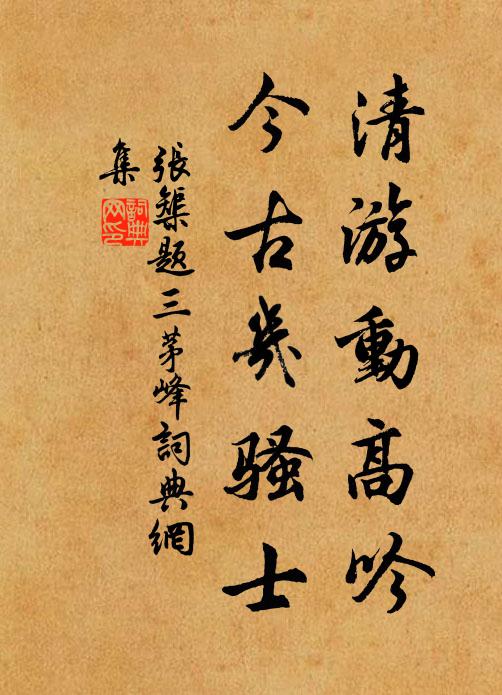 清游動高吟
今古幾騷士
張榘題三茅峰詞典網
集
詞典
网印